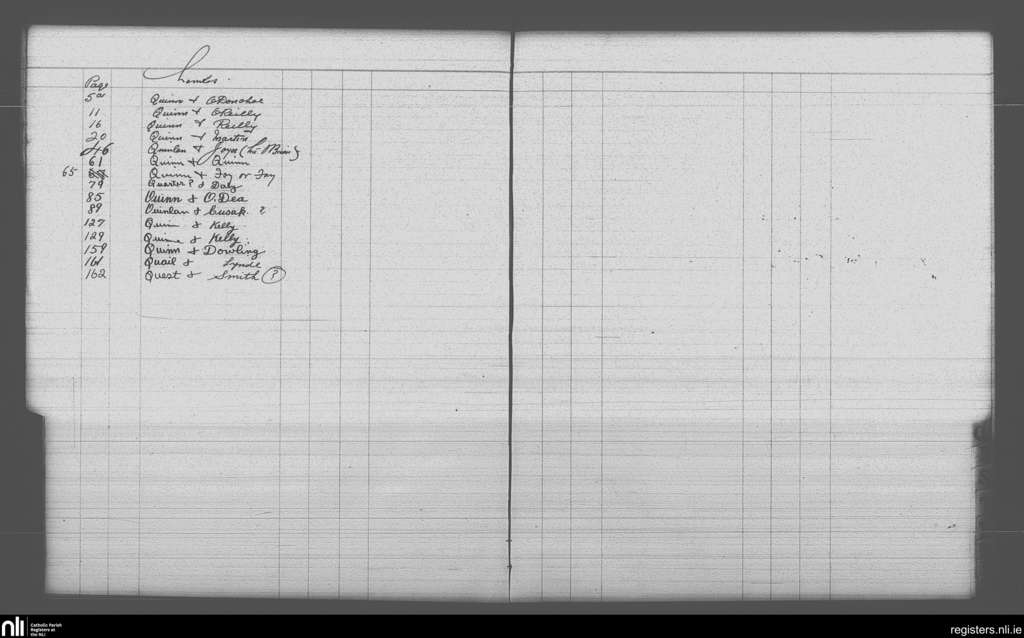 Page Names.
5
11 Quinn & O'Reilly
16 Quinn & Reilly
20 Quinn & Martin
46 Quinlan & Joyce
61 Quinn & Quinn
65 Quinn & Foy or Fay
79 Quarter? & Daly
85 Quinn & O.Dea
89 Quinlan & Cusak. ?
127 Quinn & Kelly
129 Quinn & Kelly.
159 Quinn & Dowling
161 Quail & Lynde
162 Quest & Smith (?)
nli Catholic Parish
Registers at
the NLI
registers.nli.ie